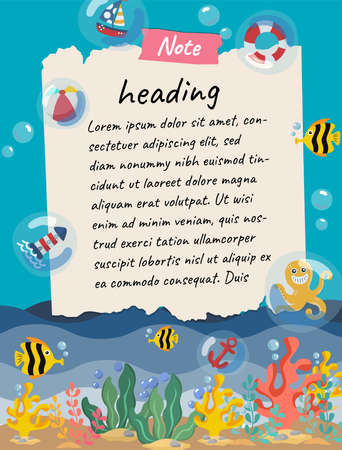 Note
heading
Lorem ipsum dolor sit amet, con-
sectetuer adipiscing elit, sed
diam nonummy nibh euismod
tincidunt ut laoreet dolore
magna aliquam erat volutpat.
Ut wisi enim ad minim veniam,
quis nostrud exerci tation
ullamcorper suscipit lobor-
tis nisl ut aliquip ex ea
commodo consequat. Duis